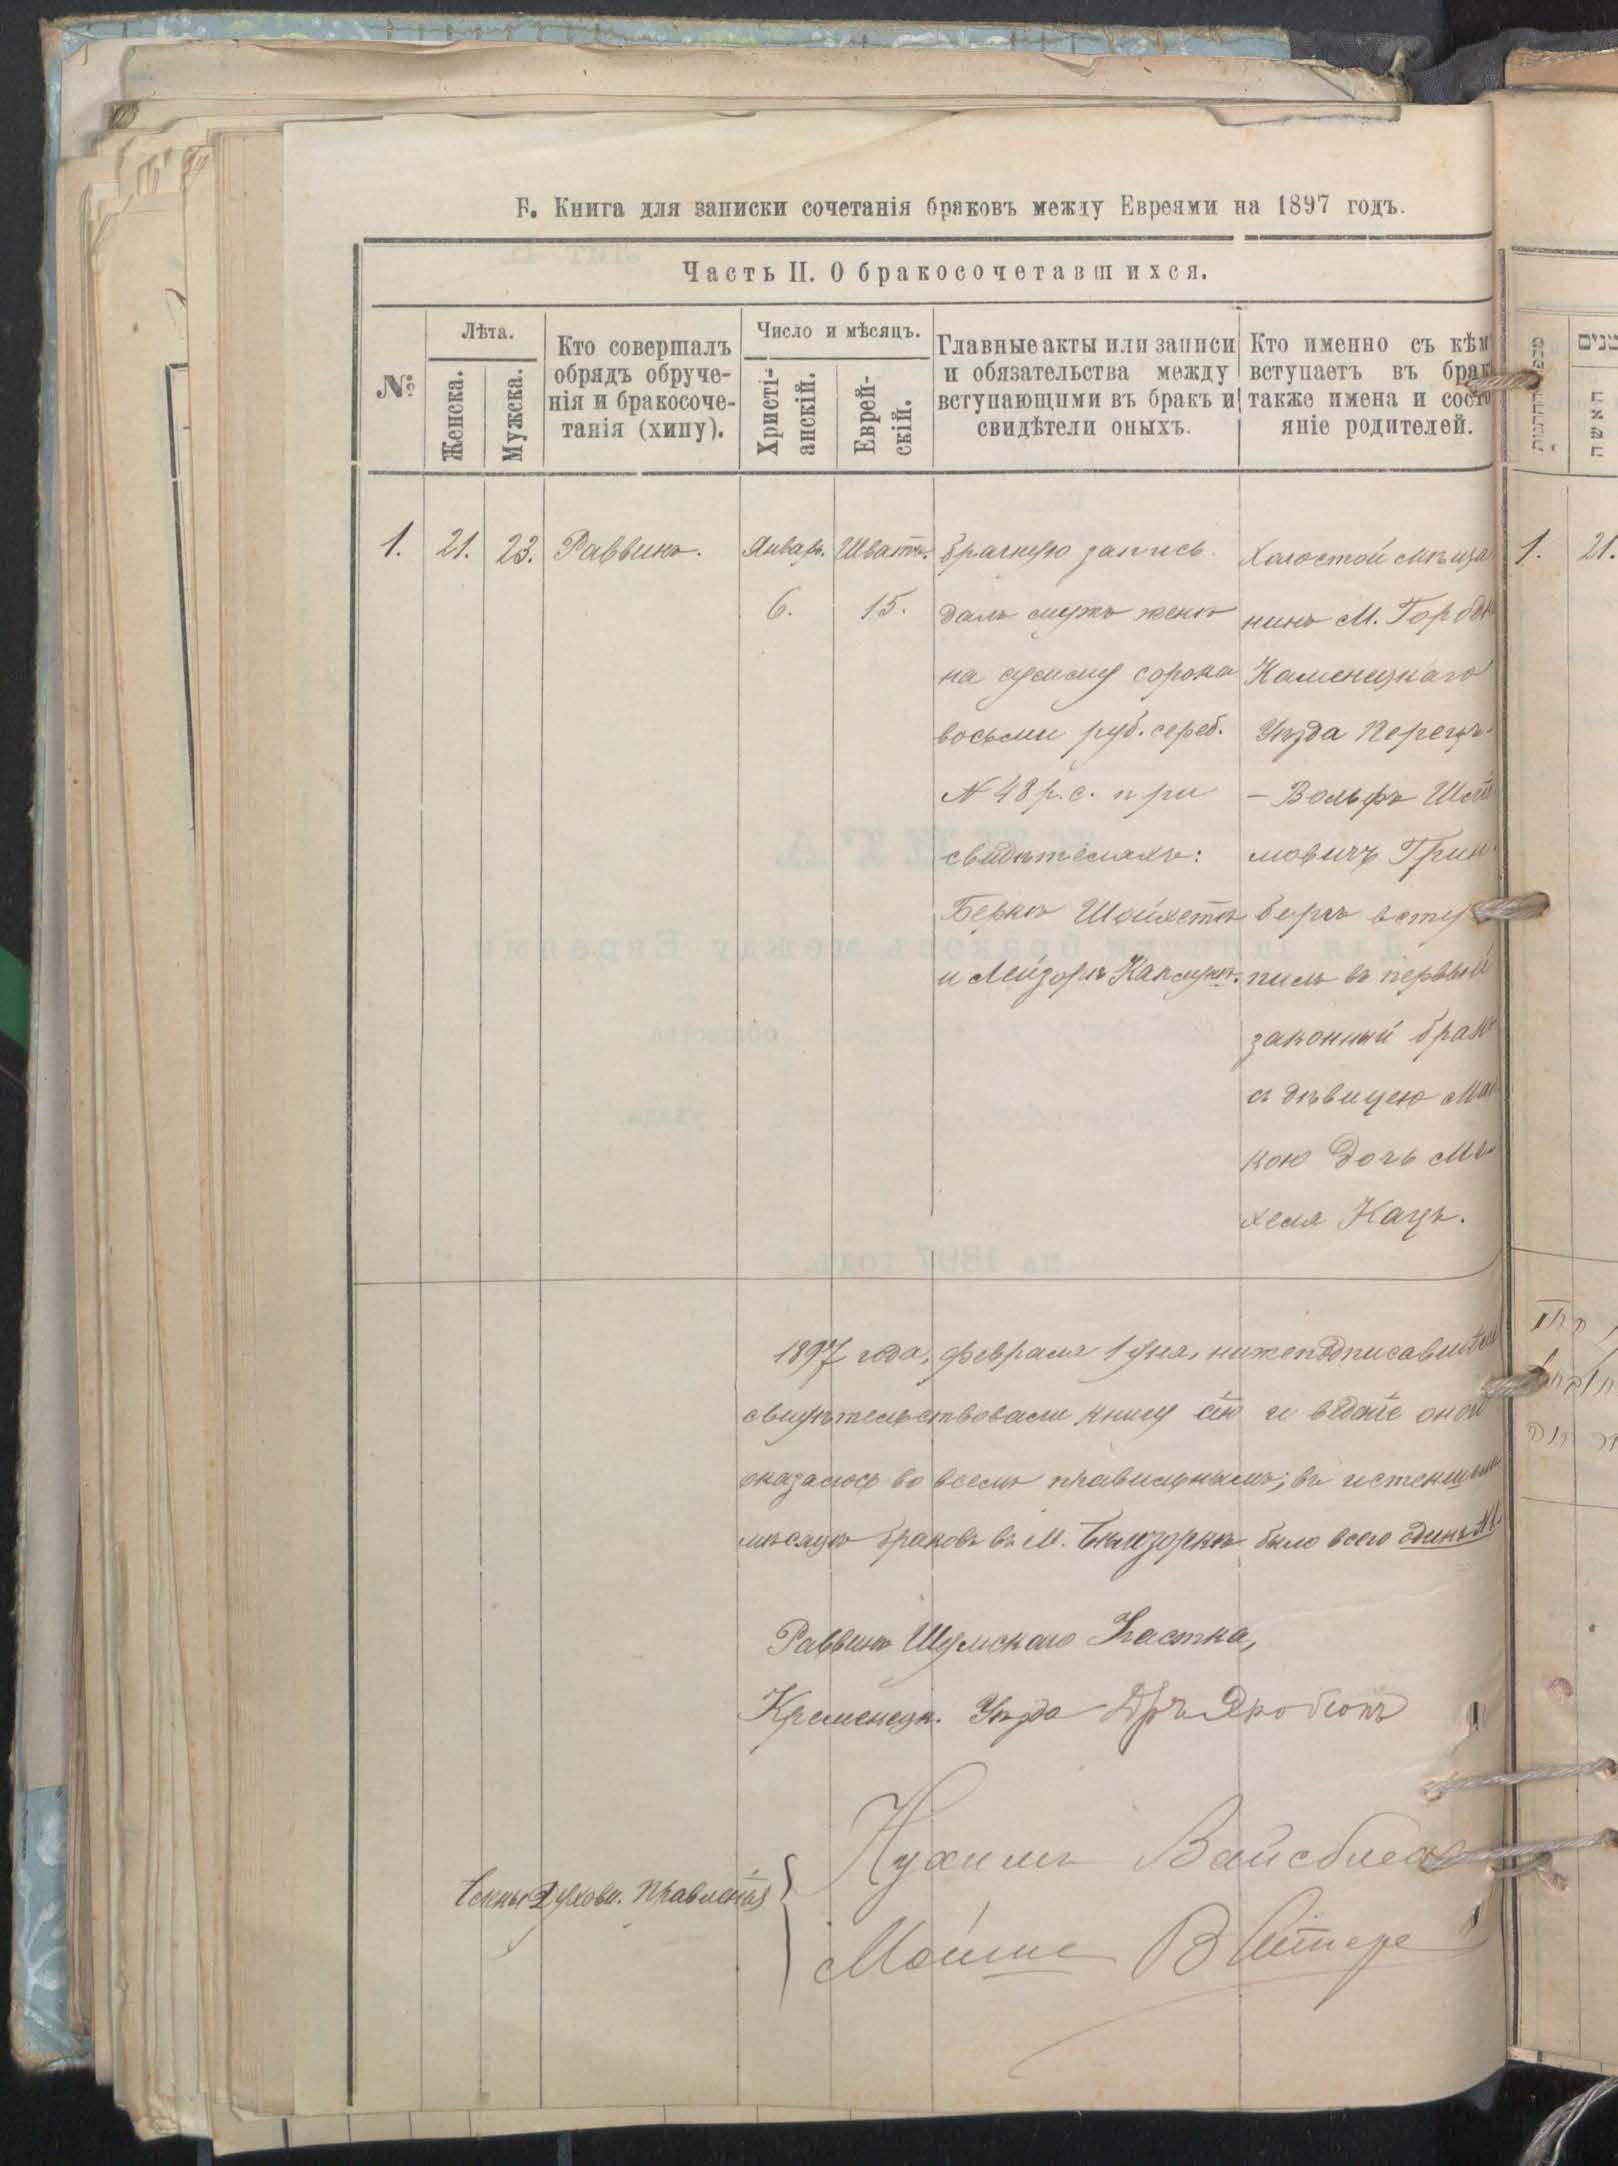 Б. Книга для записки сочетанія браковъ между Евреями на 1897 годъ.
Часть II. О бракосочетавшихся.
№
Лѣта.
Женска.
Мужска.
Кто совершалъ
обрядъ обруче-
нія и бракосоче-
танія (хипу).
Число и мѣсяцъ.
Христі-
анскій.
Еврей-
скій.
Главные акты или записи
и обязательства между
вступающими въ бракъ и
свидѣтели оныхъ.
Кто именно съ кѣм
вступаетъ въ брак
также имена и состо
яніе родителей.
1. 21. 23. Раввинъ. Январ. Шватъ.
6. 15.
брачную запись
далъ мужъ женѣ
на сумму сорока
восьми руб. сереб.
№ 48 р. с. при
свидѣтеляхъ:
Беркѣ Шойхетѣ
и Лейзорѣ
Холостой мѣща
нинъ М. Городк
Каменецкаго
Уѣзда Перецъ
– Вольфъ Шлі
мовичъ Грин
бергъ всту
пилъ въ первый
законный бракъ
съ дѣвицею Мал
кою дочь Ми
хеля Кацъ.
1897 года, февраля 1 дня, нижеподписавшіеся
свидѣтельствовали книгу сію и оной
оказалось во всемъ правильнымъ; въ истекшемъ
мѣсяцѣ браковъ въ М. Бѣлозоркѣ было всего одинъ №1.
Раввинъ Шумскаго Участка,
Кременецк. Уѣзда Дръ Якобсонъ
Члены Духовн. Правленія
Нухимъ
Мойше
1. 21.
האשה